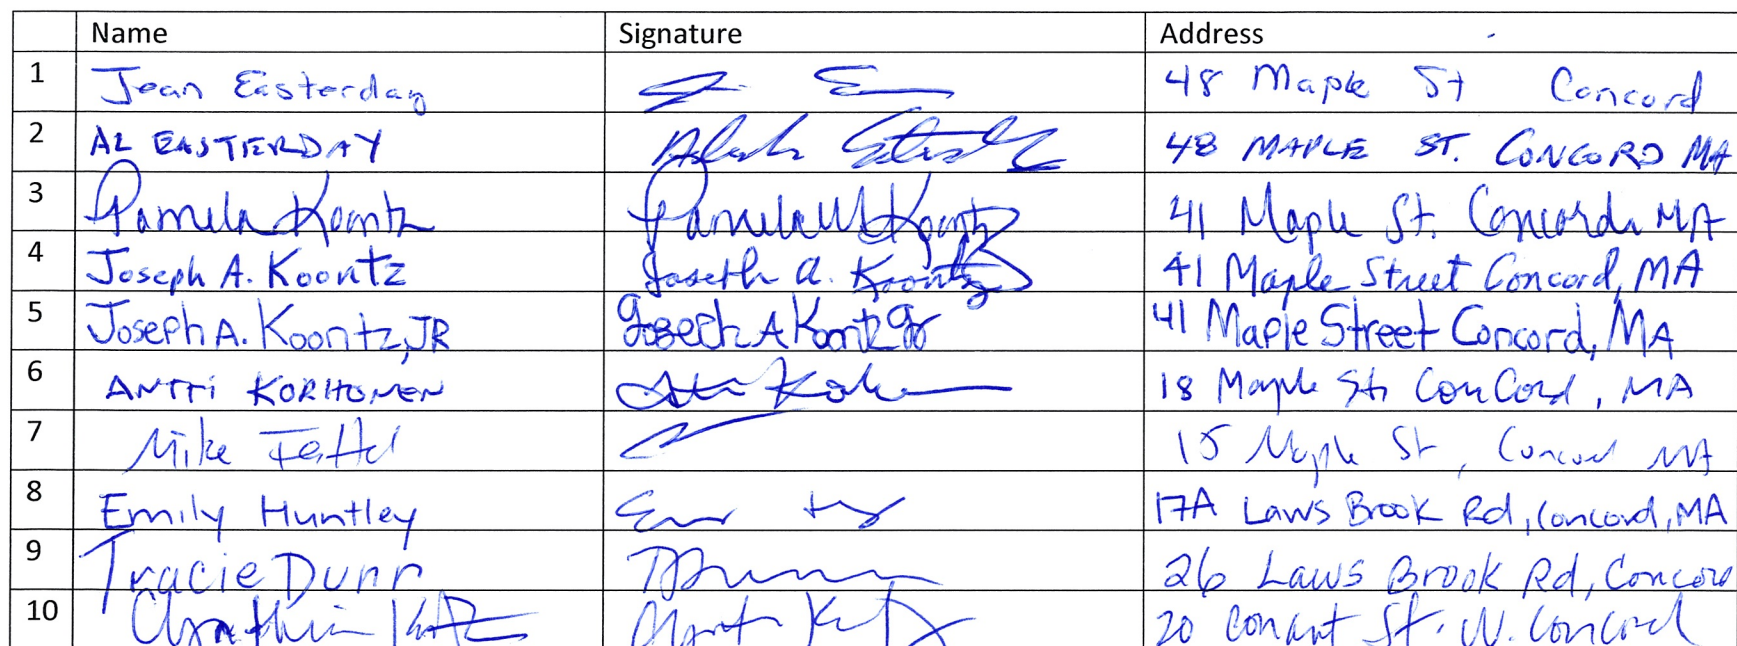 Name Signature Address
1 Jean Easterday 48 Maple St Concord
2 AL EASTERDAY 48 MAPLE ST. CONCORD MA
3 Pamela Koontz Pamela M Koontz 41 Maple St. Concord, MA
4 Joseph A. Koontz Joseph A. Koontz 41 Maple Street Concord, MA
5 Joseph A. Koontz, JR Joseph A Koontz Jr 41 Maple Street Concord, MA
6 ANTTI KORHONEN 18 Maple St. ConCord, MA
7 Mike 15 Maple St, Concord MA
8 Emily Huntley 17A Laws Brook Rd, Concord, MA
9 Tracie Dunn 26 Laws Brook Rd, Concord
10 Cynthia Katz 20 Conant St. W. Concord